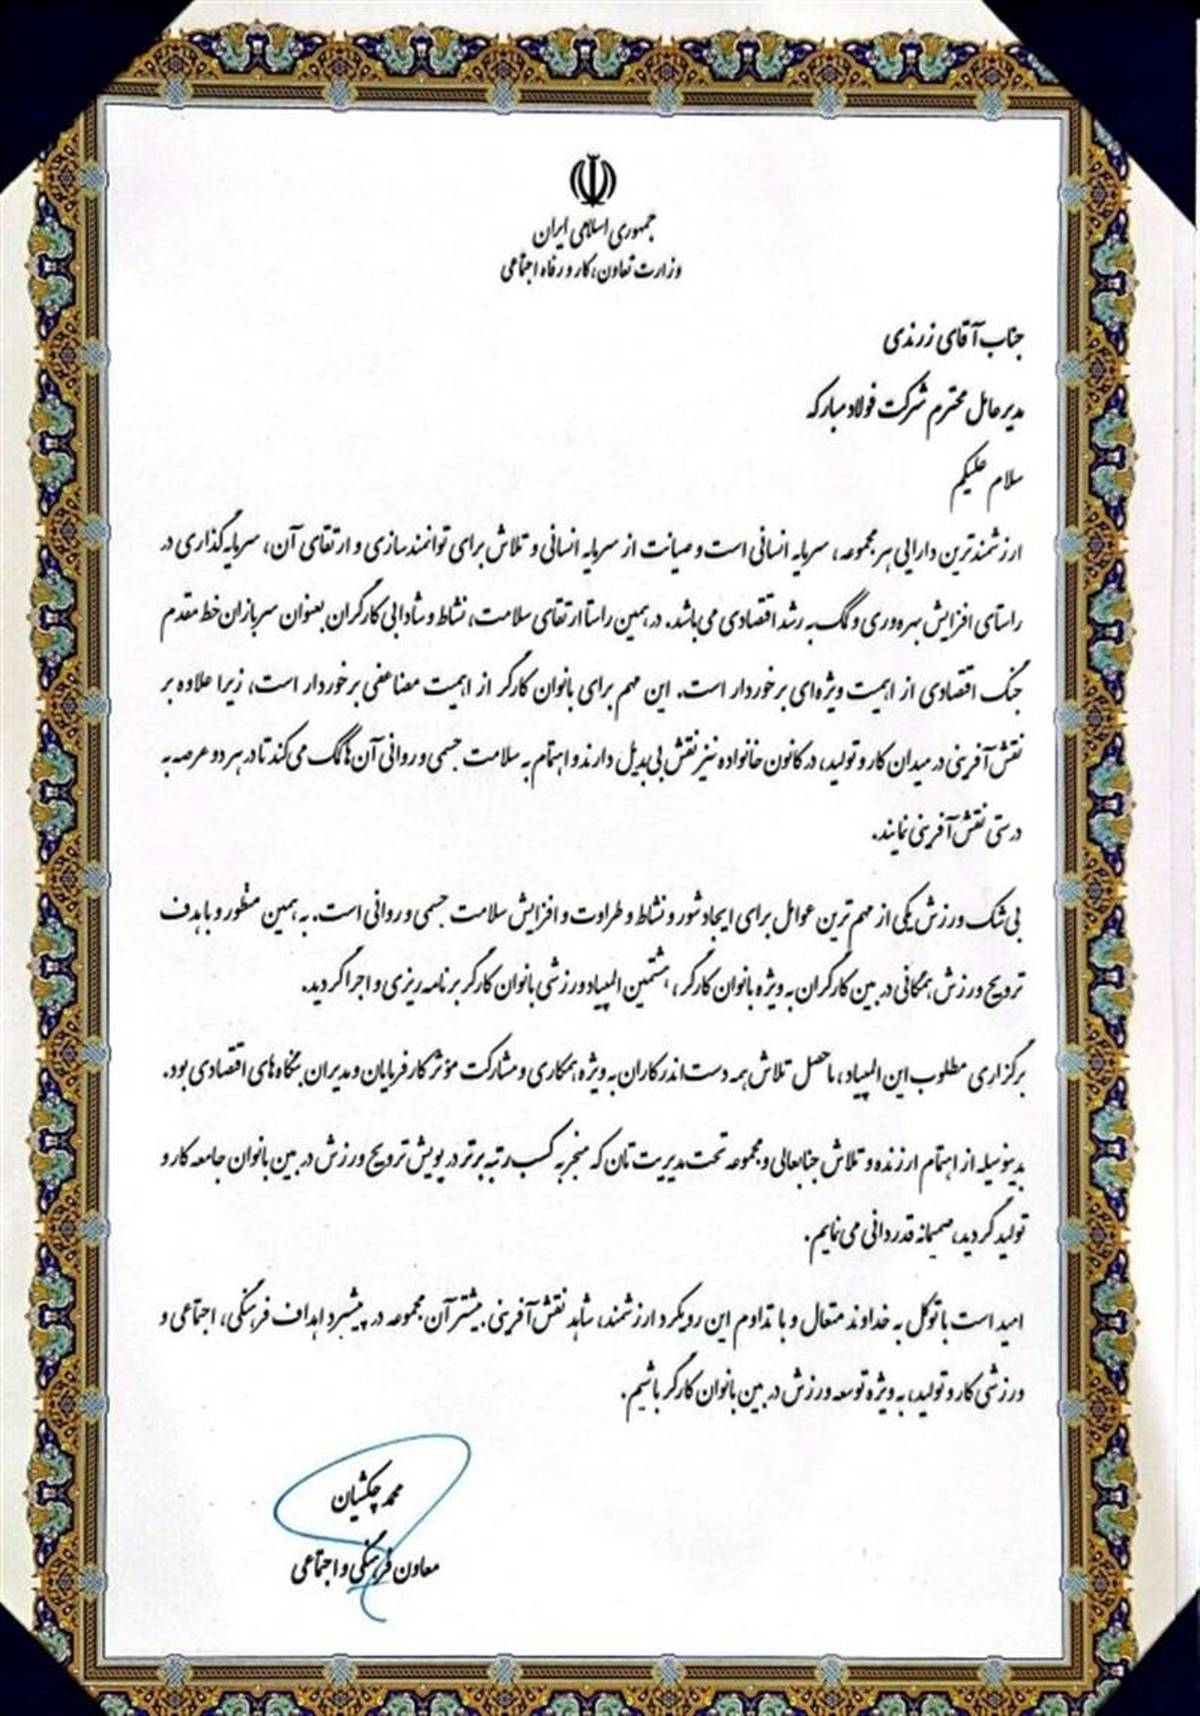 جمهوری اسلامی ایران
وزارت تعاون، کار و رفاه اجتماعی
جناب آقای زرندی
مدیرعامل محترم شرکت فولاد مبارکه
سلام علیکم
ارزشمندترین دارایی هر مجموعه، سرمایه انسانی است و صیانت از سرمایه انسانی و تلاش برای توانمندسازی و ارتقای آن، سرمایه‌گذاری در
راستای افزایش بهره‌وری و کمک به رشد اقتصادی می‌باشد. در همین راستا ارتقای سلامت، نشاط و شادابی کارگران بعنوان سربازان خط مقدم
جنگ اقتصادی از اهمیت ویژه‌ای برخوردار است. این مهم برای بانوان کارگر از اهمیت مضاعفی برخوردار است، زیرا علاوه بر
نقش‌آفرینی در میدان کار و تولید، در کانون خانواده نیز نقش بی‌بدیل دارند و اهتمام به سلامت جسمی و روانی آن‌ها کمک می‌کند تا در هر دو عرصه به
درستی نقش‌آفرینی نمایند.
بی‌شک ورزش یکی از مهم‌ترین عوامل برای ایجاد شور و نشاط و طراوت و افزایش سلامت جسمی و روانی است. به همین منظور و با هدف
ترویج ورزش همگانی در بین کارگران به ویژه بانوان کارگر، هشتمین المپیاد ورزشی بانوان کارگر برنامه‌ریزی و اجرا گردید.
برگزاری مطلوب این المپیاد، ماحصل تلاش همه دست‌اندرکاران به ویژه همکاری و مشارکت مؤثر کارفرمایان و مدیران بنگاه‌های اقتصادی بود.
بدینوسیله از اهتمام ارزنده و تلاش جنابعالی و مجموعه تحت مدیریت‌تان که منجر به کسب رتبه برتر در پویش ترویج ورزش در بین بانوان جامعه کار و
تولید گردید، صمیمانه قدردانی می‌نمایم.
امید است با توکل به خداوند متعال و با تداوم این رویکرد ارزشمند، شاهد نقش‌آفرینی بیشتر آن مجموعه در پیشبرد اهداف فرهنگی، اجتماعی و
ورزشی کار و تولید، به ویژه توسعه ورزش در بین بانوان کارگر باشیم.
محمد چکشیان
معاون فرهنگی و اجتماعی